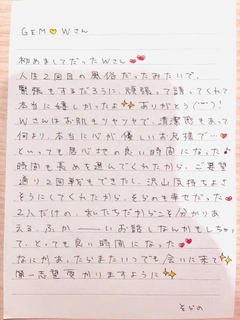 GEM♡Wさん
初めましてだったWさん💕
人生2回目の風俗だったみたいで、
緊張もするだろうに、頑張って誘ってくれて
本当に嬉しかったよ✨ありがとう(´˘`)!
Wさんはお肌もツヤツヤで、清潔感もあって
何より、本当に心が優しいお客様で…💕
といっても居心地の良い時間になった♪
時間も長めを選んでくれたから、ご要望
通り2回戦もできたし、沢山気持ちよさ
そうにしてくれたから、そらのも幸せだった♡
2人だけの、私たちだからこそ分かりあ
える、ふか――いお話しなんかもしちゃっ
て、とっても良い時間になった❤
なにかあったらまたいつでも会いに来て✨
第一志望受かりますように✨
そらの